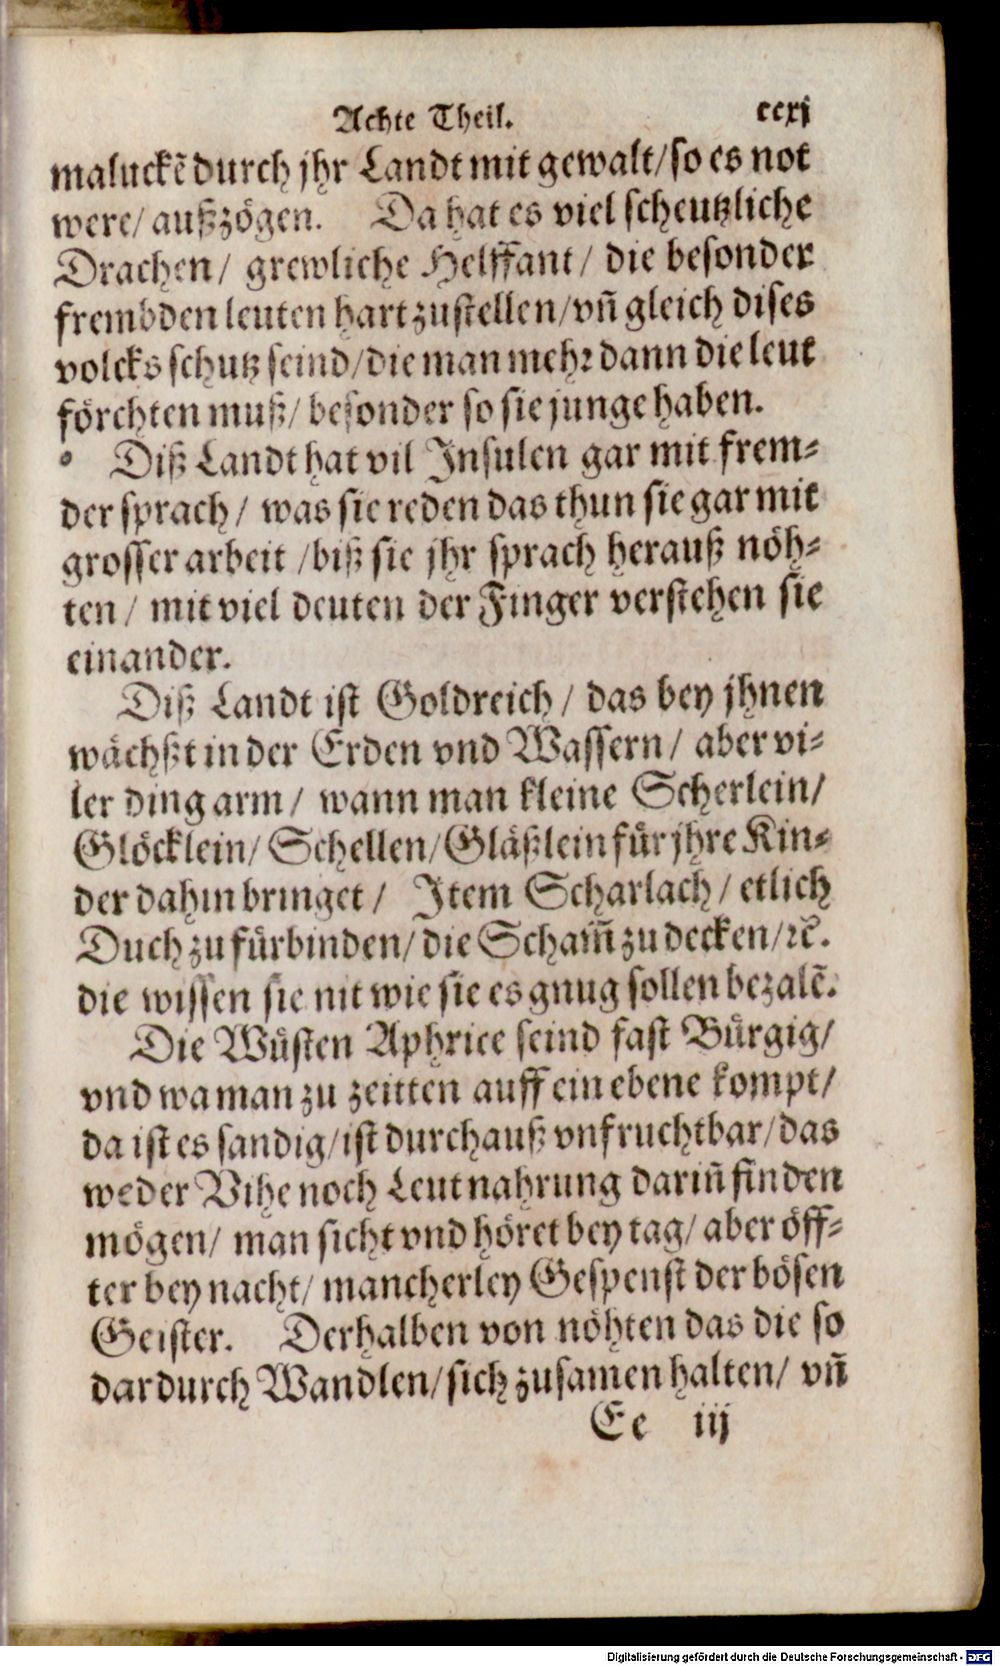 Achte Theil. ccxj
maluckẽ durch jhr Landt mit gewalt/ so es not
were/ außzögen. Da hat es viel scheutzliche
Drachen/ grewliche Helffant/ die besonder
frembden leuten hart zustellen/ vñ gleich dises
volcks schutz seind/ die man mehr dann die leut
förchten muß/ besonder so sie junge haben.
Diß Landt hat vil Insulen gar mit frem-
der sprach/ was sie reden das thun sie gar mit
grosser arbeit/ biß sie jhr sprach herauß nöh-
ten/ mit viel deuten der Finger verstehen sie
einander.
Diß Landt ist Goldreich/ das bey jhnen
wächßt in der Erden vnd Wassern/ aber vi-
ler ding arm/ wann man kleine Scherlein/
Glöcklein/ Schellen/ Gläßlein für jhre Kin-
der dahin bringet/ Item Scharlach/ etlich
Duch zu fürbinden/ die Scham̃ zu decken/ ꝛc̃.
die wissen sie nit wie sie es gnug sollen bezalẽ.
Die Wüsten Aphrice seind fast Bürgig/
vnd wa man zu zeitten auff ein ebene kompt/
da ist es sandig/ ist durchauß vnfruchtbar/ das
weder Vihe noch Leut nahrung dariñ finden
mögen/ man sicht vnd höret bey tag/ aber öff-
ter bey nacht/ mancherley Gespenst der bösen
Geister. Derhalben von nöhten das die so
dardurch Wandlen/ sich zusamen halten/ vñ
Ee iij
Digitalisierung gefördert durch die Deutsche Forschungsgemeinschaft - DFG